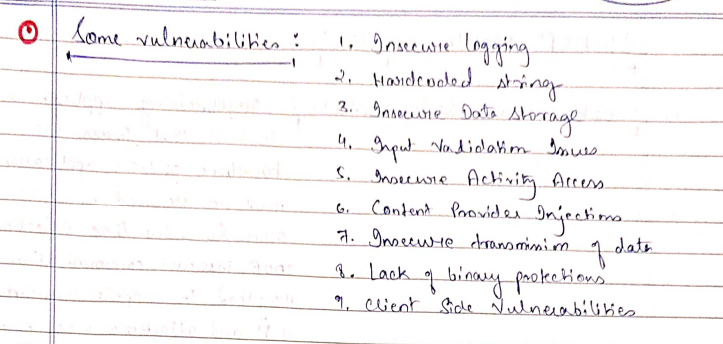 Some vulnerabilities : 1. Insecure logging
2. Hardcoded string
3. Insecure Data Storage
4. Input Validation Issues
5. Insecure Activity Access
6. Content Provider Injections
7. Insecure transmission of data
8. Lack of binary protections
9. Client Side Vulnerabilities